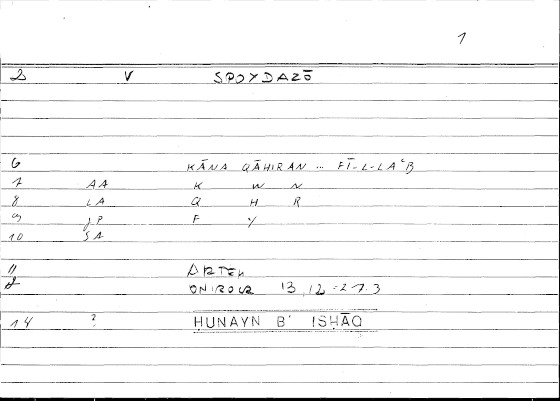 1
2 V SPOYDAZŌ
6 KĀNA QĀHIRAN ... FĪ-L-LAʿB
7 AA K W N
8 LA Q H R
9 JP F Y
10 SA
11 ARTEM
ONIROCR 13,12 = 27.3
14 ? ḤUNAYN B' ISḤĀQ